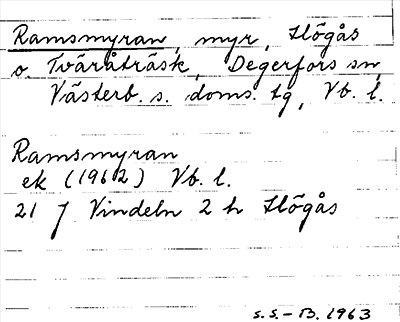 Ramsmyran, myr, Högås
o. Tväråträsk, Degerfors sn,
Västerb. s. doms. tg, Vb. l.
Ramsmyran
ek (1962) Vb. l.
21 J Vindeln 2 h Högås
S.S.-B. 1963